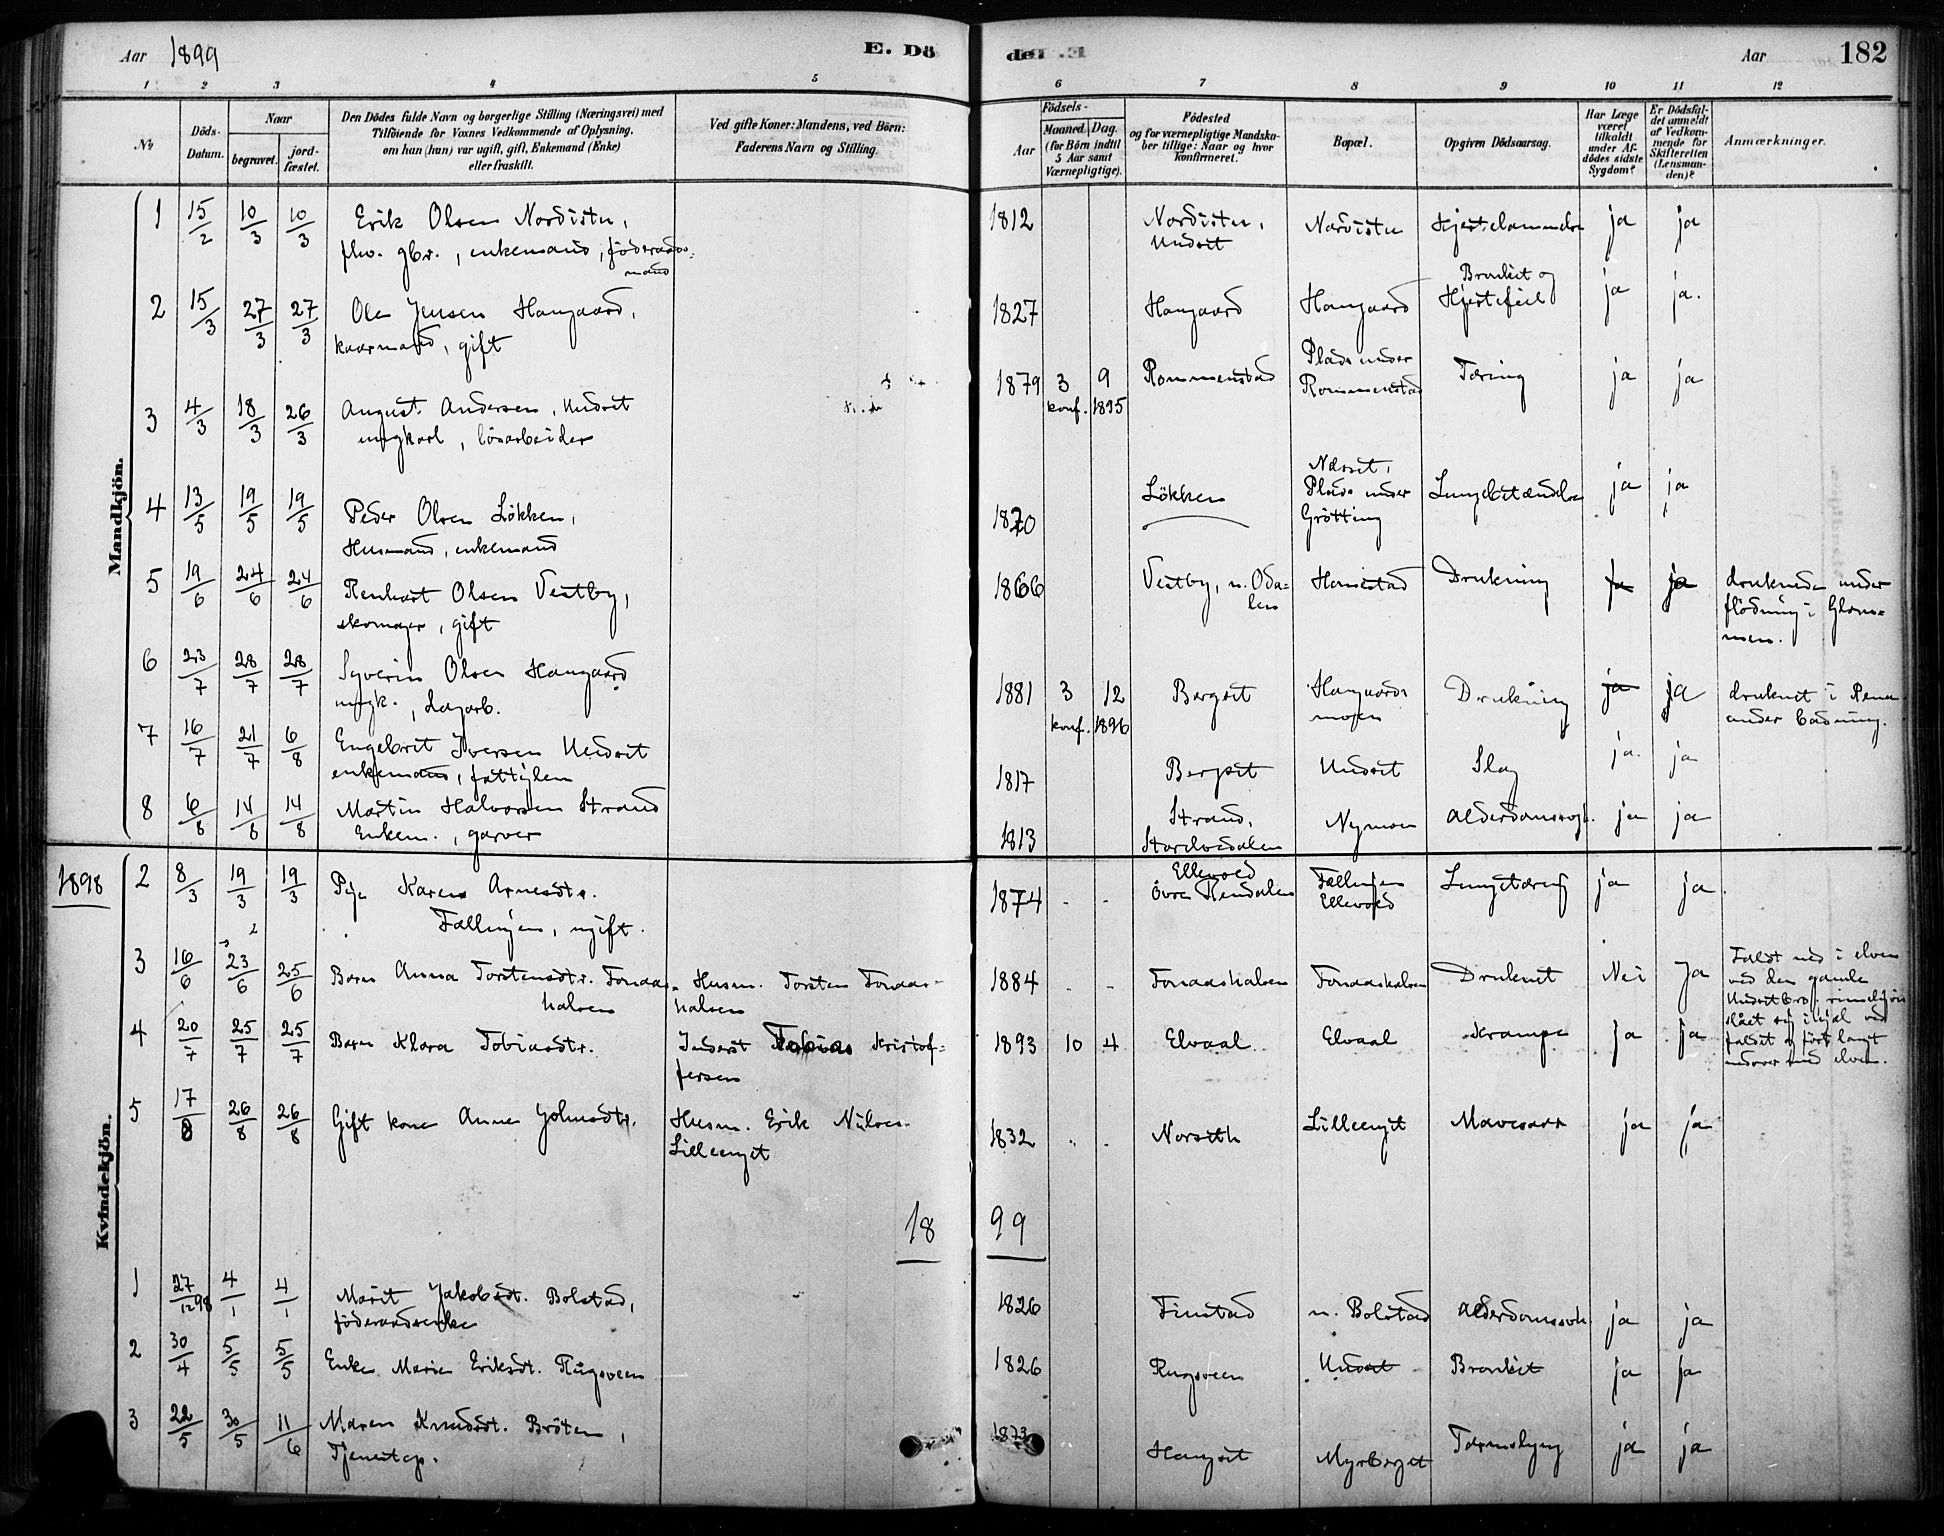 Aar 1899
E. Dö
de E.
Aar 182
1 2 3 4 5 6 7 8 9 10 11 12
No
Döds-Datum.
Naar
begravet.
jord-fæstet.
Den Dödes fulde Navn og borgerlige Stilling (Næringsvei) med
Tilföiende for Voxnes Vedkommende af Oplysning,
om han (hun) var ugift, gift, Enkemand (Enke)
eller fraskilt.
Ved gifte Koner: Mandens, ved Börn:
Faderens Navn og Stilling.
Födsels-
Aar
Maaned. Dag.
(for Börn indtil
5 Aar samt
Værnepligtige).
Födested
og for værnepligtige Mandska-
ber tillige: Naar og hvor
konfirmeret.
Bopæl.
Opgiven Dödsaarsag.
Har Læge
været
tilkaldt
under Af-
dödes sidste
Sygdom?
Er Dödsfal-
det anmeldt
af Vedkom-
mende for
Skifteretten
(Lensman-
den)?
Anmærkninger.
Mandkjön.
1 15/2 10/3 10/3 Erik Olsen Nordistu, 1812 Nordistu, Nordistu ja ja
fhv. gbr., enkemand, föderaads- Undset
mand
Bronkit og
2 15/3 27/3 27/3 Ole Jensen Haugaard, 1827 Haugaard Haugaard Hjertefeil ja ja.
kaarmand, gift
Plads under
3 4/3 18/3 26/3 August Andersen, Undset 1879 3 9 Rommenstad Rommenstad Tæring ja ja
ungkarl, lösarbeider konf. 1895
Næsset,
4 13/5 19/5 19/5 Peder Olsen Lökken, 1820 Lökken Plads under Lungebetændelse ja ja
Husmand, enkemand Grötting
5 19/6 24/6 24/6 Renhart Olsen Vestby, 1866 Vestby, n. Oda- Drukning ja ja druknede under
skomager, gift len flödning i Glom-
men.
6 23/7 28/7 28/7 Syverin Olsen Haugaard 1881 3 12 Bergset Haugaards Drukning ja ja druknet i Rena
ungk., dagarb. konf. 1896 moen under badning.
7 16/7 21/7 6/8 Engebret Iversen Undset 1817 Bergset Undset Slag ja. ja
enkemand, fattiglem
8 6/8 14/8 14/8 Martin Halvorsen Strand 1813 Strand, Nymoen ja ja
Enkem., garver Storelvedalen
Kvindekjön.
1898
2 8/3 19/3 19/3 Pige Karen Arnesdtr. 1874 - - Ellevold Fællingen Lungetæring ja ja.
Fællingen, ugift. Övre Rendalen Ellevold
3 16/6 23/6 25/6 Barn Anna Torstensdtr. Fonaas- Husm. Torsten Fonaas- 1884 - - Fonaashalsen Fonaashalsen Druknet Nei Ja Faldt ned i elven
halsen halsen ved den gamle
Undsetbro, rimeligvis
slået sig ihjel ved
faldet og fört langt
udover med elven.
4 20/7 25/7 25/7 Barn Klara Tobiasdtr. Inderst Tobias Kristof- 1893 10 4 Elvaal Elvaal Krampe Ja ja
fersen
5 17/8 26/8 26/8 Gift kone Anne Johnsdtr. Husm. Erik Nilsen 1832 - - Lilleenget ja ja
Lilleenget
18 99
1 27/12 98 4/1 4/1 Marit Jakobsdt. Bolstad, 1826 Finstad n. Bolstad ja ja
föderaadsenke
2 30/4 5/5 5/5 Enke Marie Eriksdt. Rugsveen 1826 Rugsveen Undset Bronkit ja ja
3 22/5 30/5 11/6 Maren Knudsdt. Bråten, 1873 Haugset Myrberget ja ja
Tjenestep.